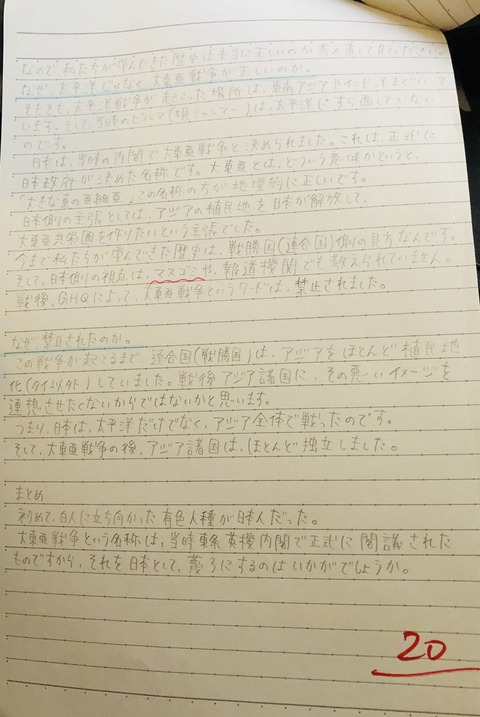 なので私たちが学んできた歴史は本当に正しいのか考え直して見てください。
なぜ、太平洋じゃなく、大東亜戦争が正しいのか。
そもそも、太平洋戦争が起こった場所は、東南アジアやインド洋まで
います。そして、当時のビルマ(現ミャンマー)は、太平洋にすら面していない
のです。
日本は、当時の内閣で大東亜戦争と決められました。これは、正式に
日本政府が決めた名称です。大東亜とは、どういう意味かというと、
「大きな東の亜細亜」この名称の方が地理的に正しいです。
日本側の主張としては、アジアの植民地を日本が解放して、
大東亜共栄圏を作りたいという主張でした。
今まで私たちが学んできた歴史は、戦勝国(連合国)側の見方なんです。
そして、日本側の視点は、マスゴミや、報道機関でも教えられていません。
戦後、GHQによって、大東亜戦争というワードは、禁止されました。
なぜ禁止されたのか。
この戦争が起こるまで、連合国(戦勝国)は、アジアをほとんど植民地
化(タイ以外)していました。戦後アジア諸国に、その悪いイメージを
連想させたくないからではないかと思います。
つまり、日本は、太平洋だけでなく、アジア全体で戦ったのです。
そして、大東亜戦争の後、アジア諸国は、ほとんど独立しました。
まとめ
初めて、白人に立ち向かった有色人種が日本人だった。
大東亜戦争という名称は、当時東条英機内閣で正式に閣議された
ものですから、それを日本として、蔑ろにするのはいかがでしょうか。
20